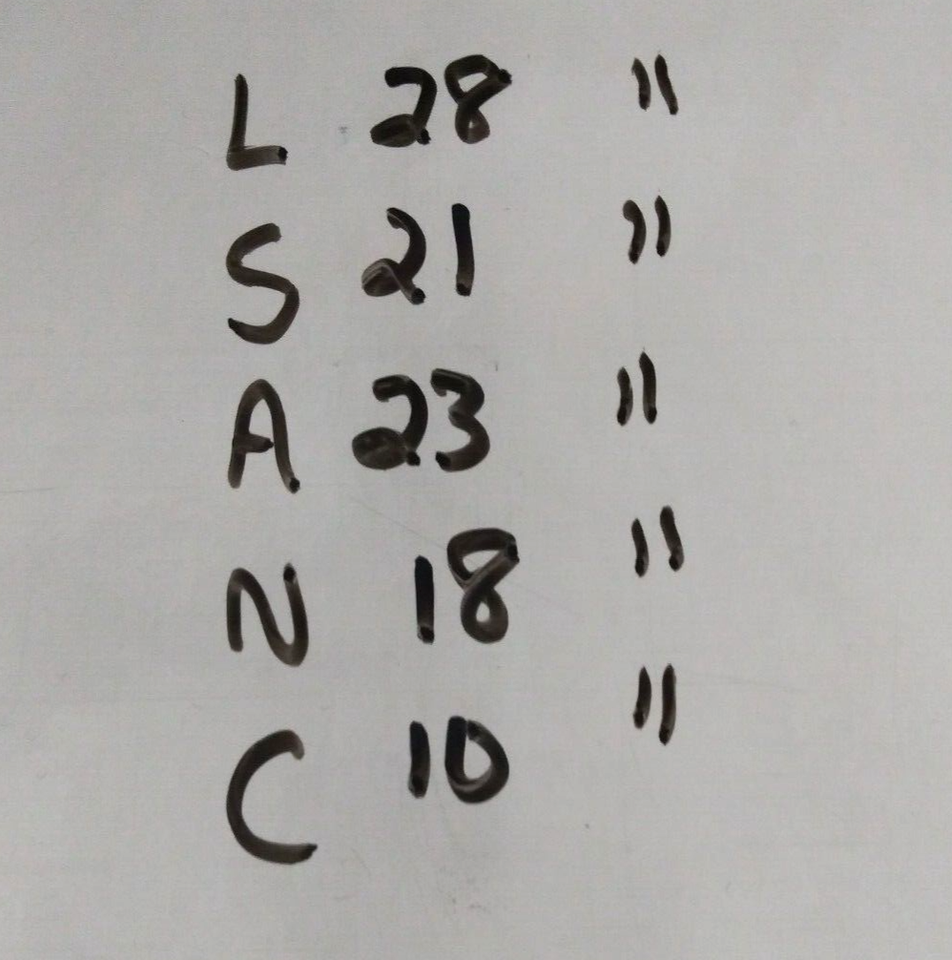 L 28 "
S 21 "
A 23 "
N 18 "
C 10 "